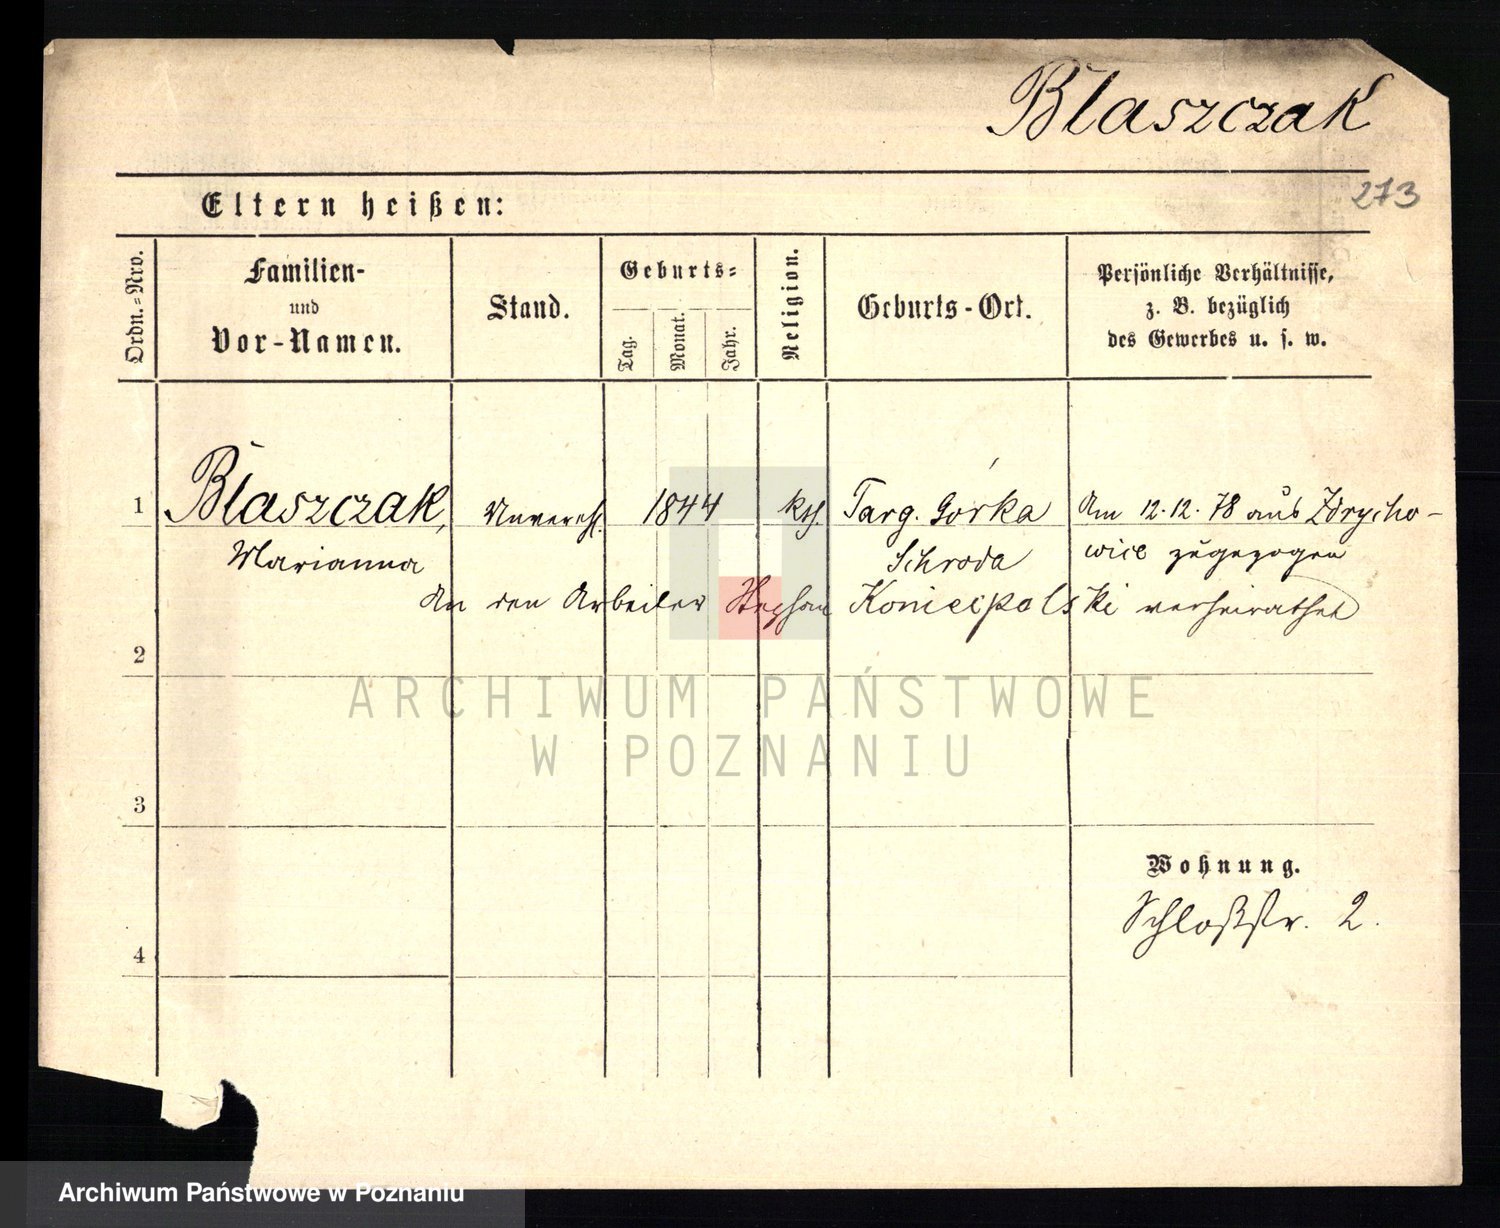 Błaszczak
273
Eltern heißen:
Ordn.-Nro.
Familien-
und
Vor-Namen.
Stand.
Geburts-
Tag.
Monat.
Jahr.
Religion.
Geburts-Ort.
Persönliche Verhältnisse,
z. B. bezüglich
des Gewerbes u. s. w.
1 Błaszczak, Unvereh. 1844 kth. Targ. Górka Am 12.12.78 aus Zdrycho-
Marianna Schroda wice zugezogen
An den Arbeiter Stephan Koniecpolski verheirathet
2
ARCHIWUM PAŃSTWOWE
W POZNANIU
3
Wohnung.
Schloßstr. 2.
4
Archiwum Państwowe w Poznaniu